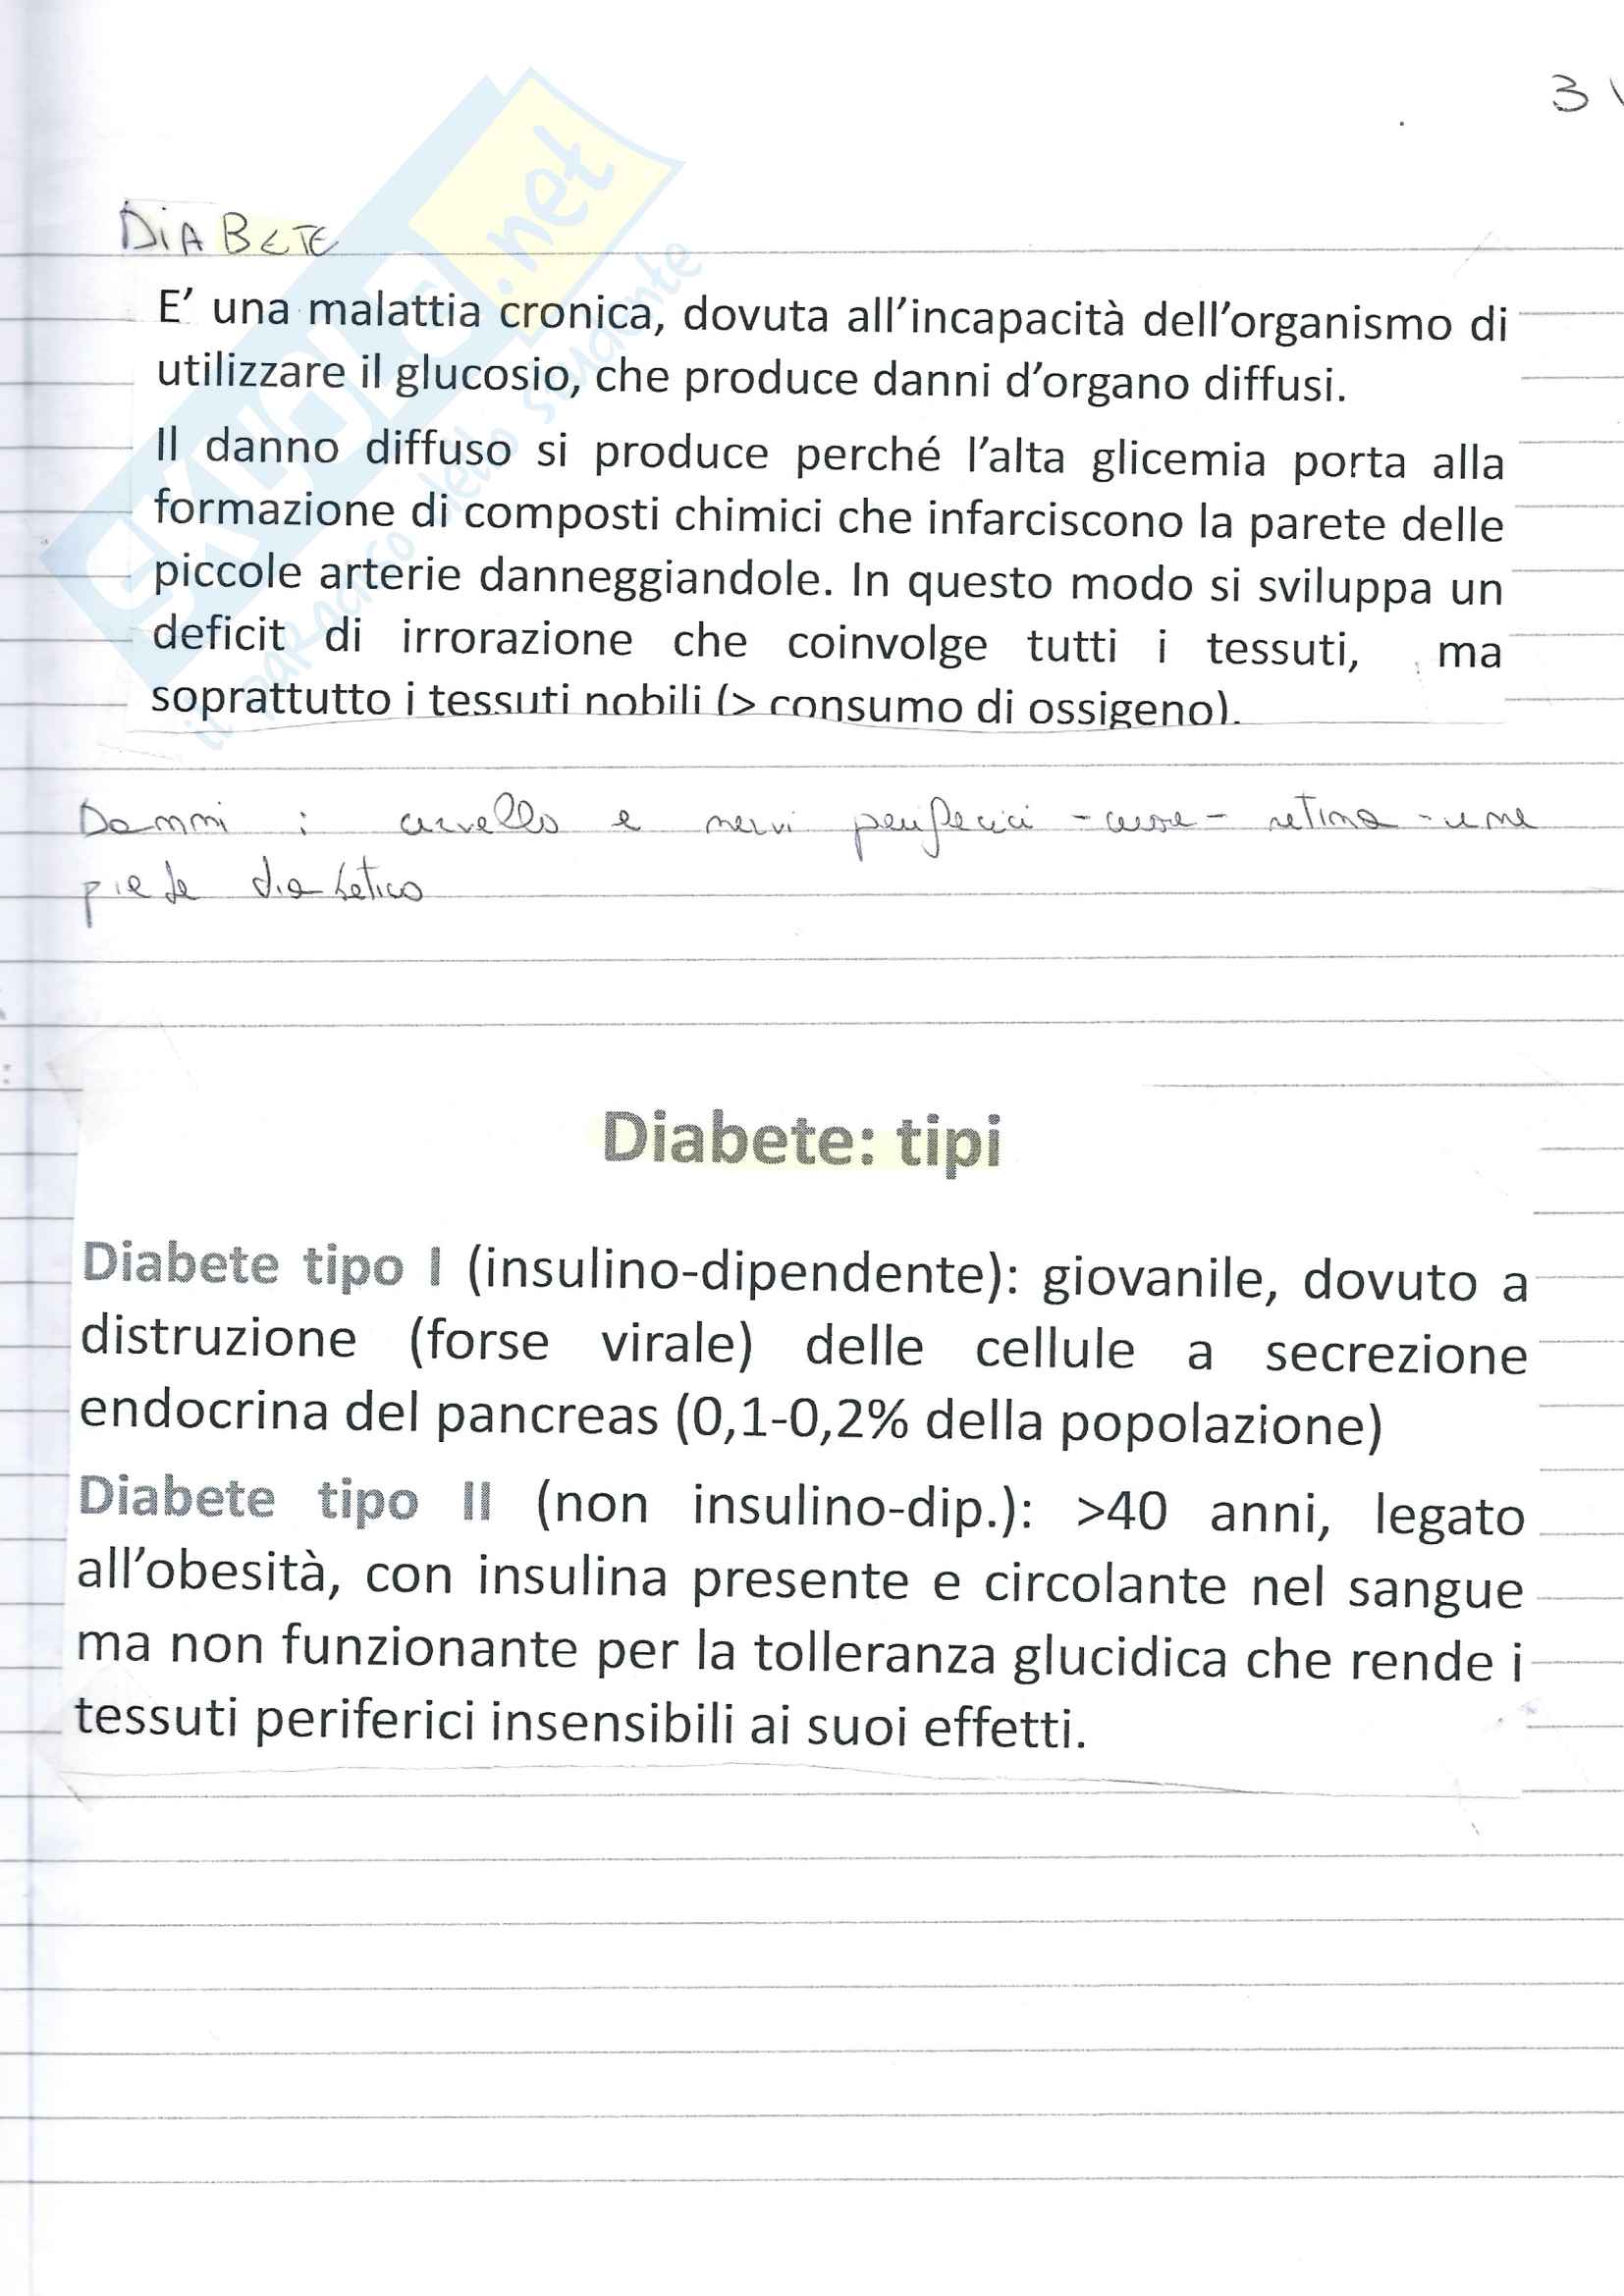 3
DiABETE
E’ una malattia cronica, dovuta all’incapacità dell’organismo di
utilizzare il glucosio, che produce danni d’organo diffusi.
Il danno diffuso si produce perché l’alta glicemia porta alla
formazione di composti chimici che infarciscono la parete delle
piccole arterie danneggiandole. In questo modo si sviluppa un
deficit di irrorazione che coinvolge tutti i tessuti, ma
soprattutto i tessuti nobili (> consumo di ossigeno).
Danni : cervello e nervi periferici - cuore - retina - rene
piede diabetico
Diabete: tipi
Diabete tipo I (insulino-dipendente): giovanile, dovuto a
distruzione (forse virale) delle cellule a secrezione
endocrina del pancreas (0,1-0,2% della popolazione)
Diabete tipo II (non insulino-dip.): >40 anni, legato
all’obesità, con insulina presente e circolante nel sangue
ma non funzionante per la tolleranza glucidica che rende i
tessuti periferici insensibili ai suoi effetti.
SKUOLA.net
il paradiso dello studente